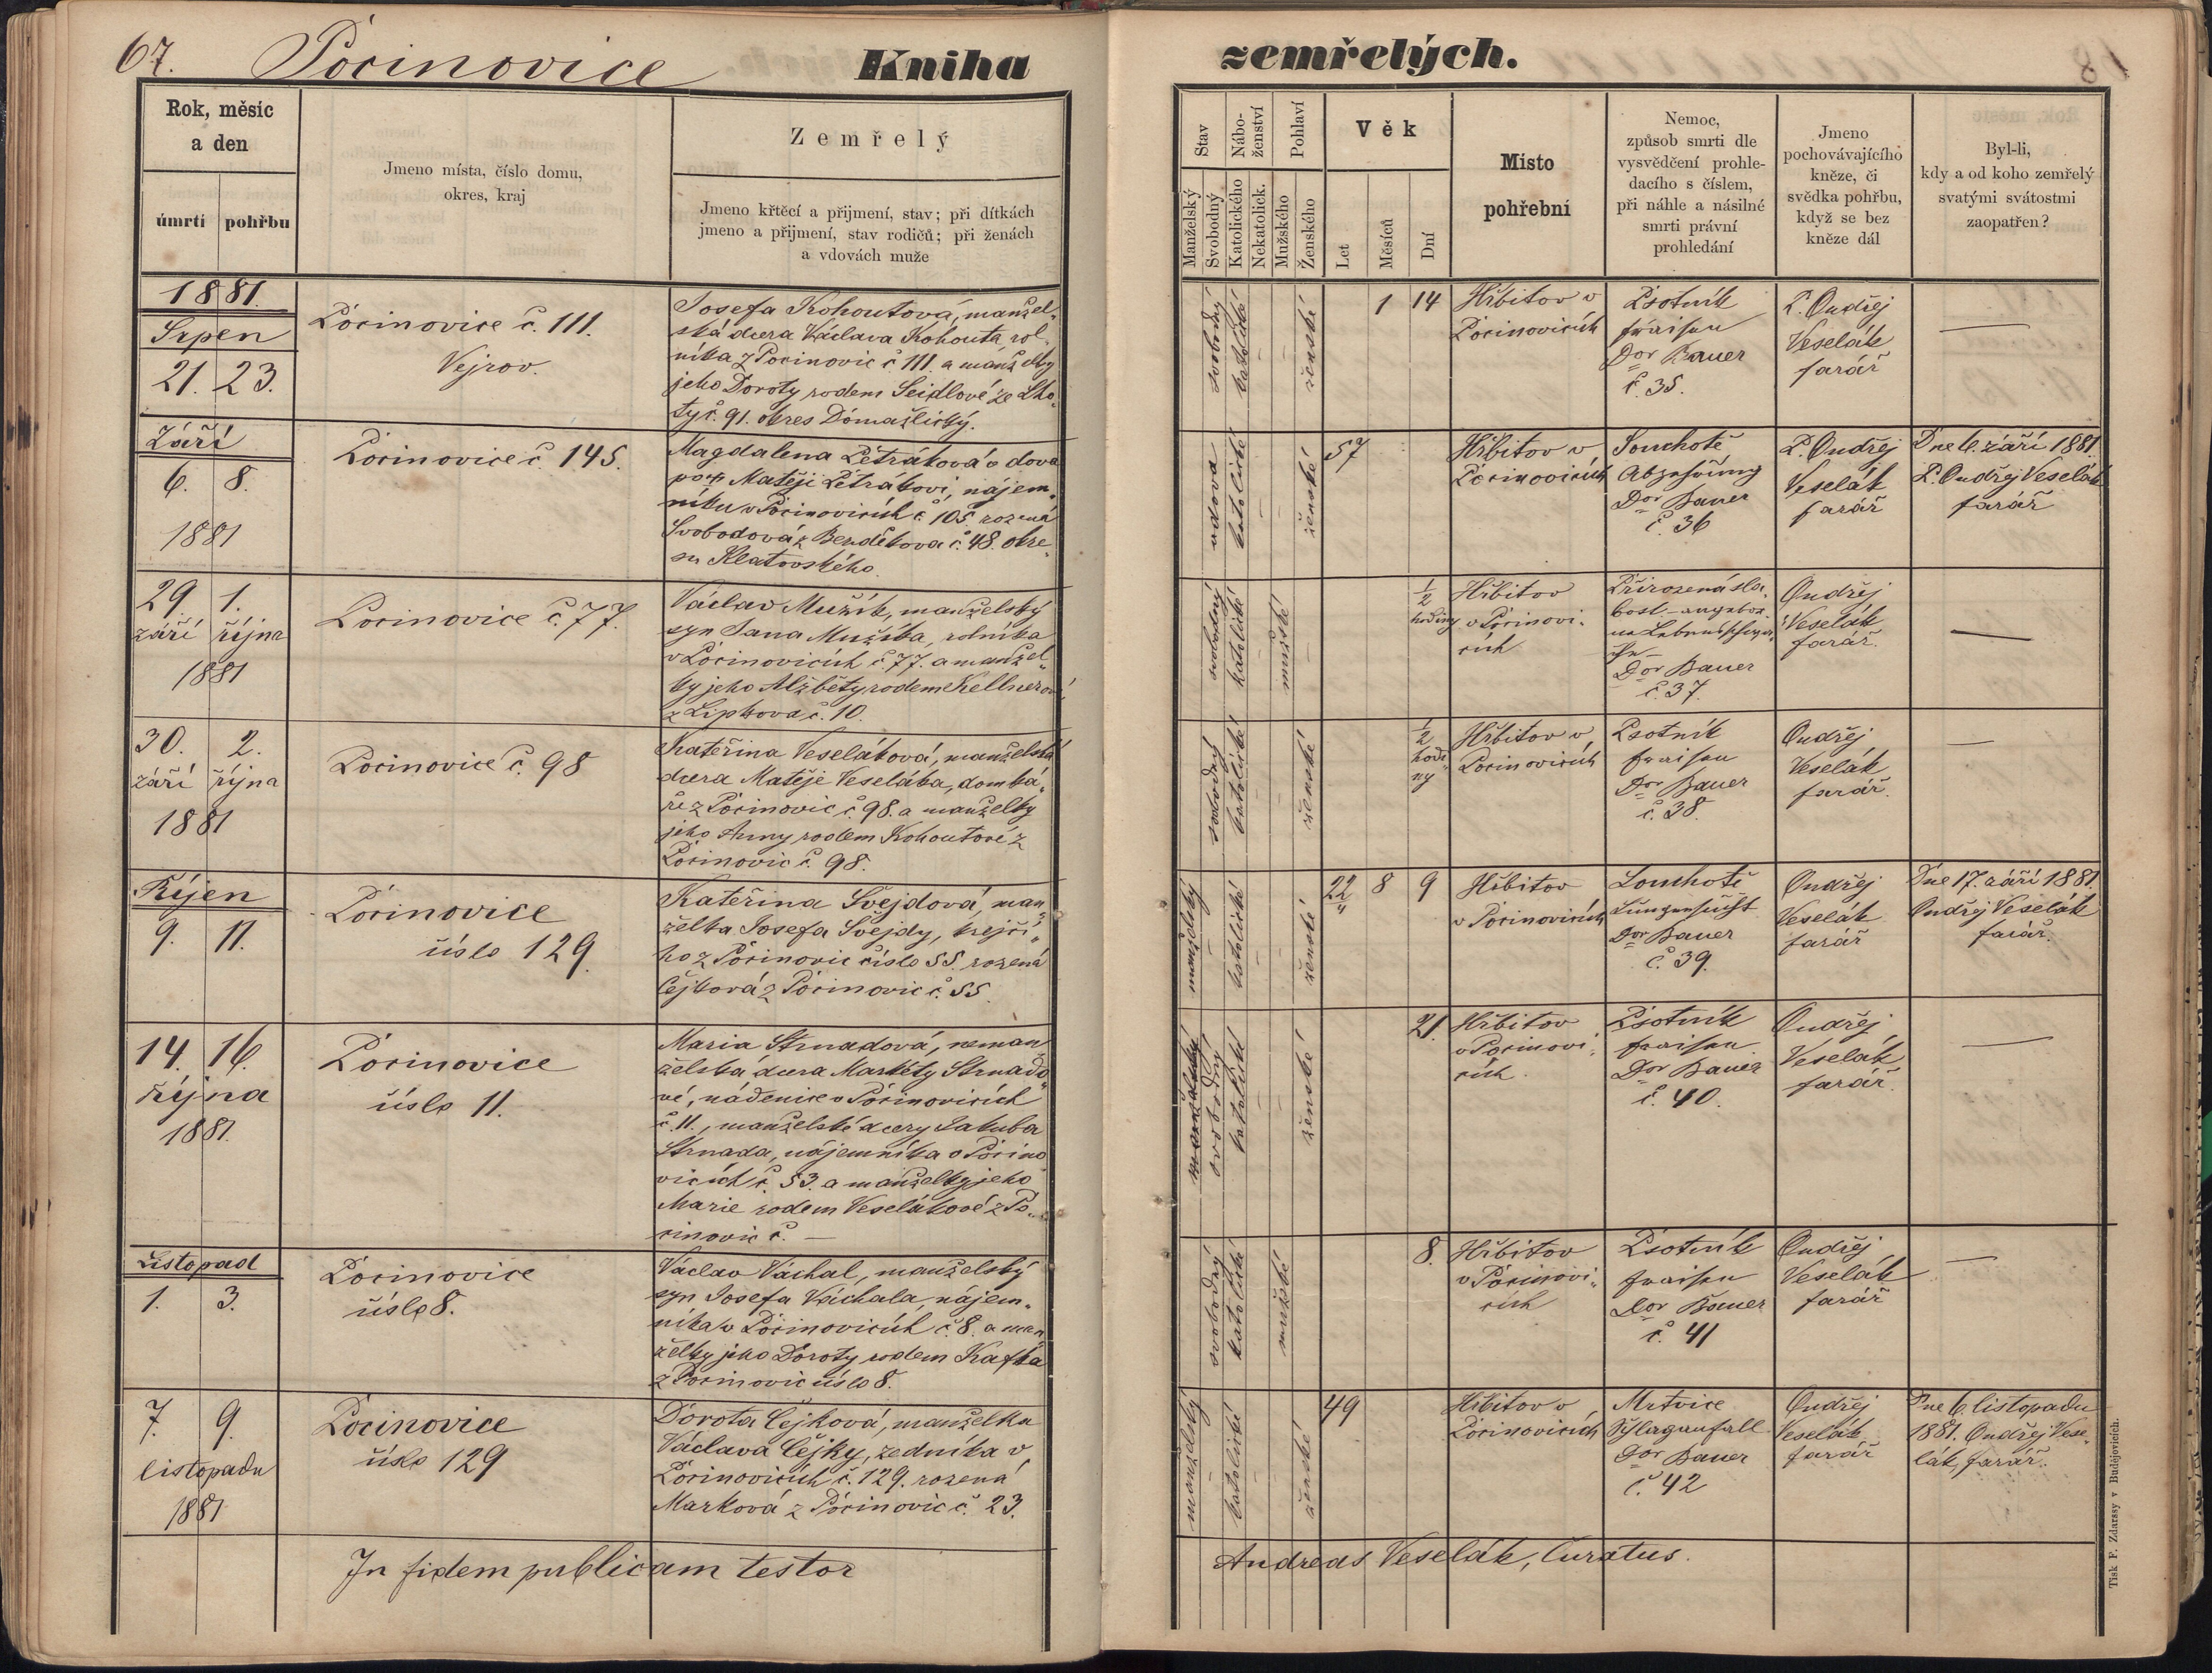 67. Pocinovice Kniha zemřelých.
Rok, měsíc
a den
úmrtí pohřbu
Jmeno místa, číslo domu,
okres, kraj
Zemřelý
Jmeno křtěcí a přijmení, stav; při dítkách
jmeno a přijmení, stav rodičů; při ženách
a vdovách muže
Stav
Manželský
Svobodný
Nábo-
ženství
Katolického
Nekatolick.
Pohlaví
Mužského
Ženského
Věk
Let
Měsíců
Dní
Místo
pohřební
Nemoc,
způsob smrti dle
vysvědčení prohle-
dacího s číslem,
při náhle a násilné
smrti právní
prohledání
Jmeno
pochovávajícího
kněze, či
svědka pohřbu,
když se bez
kněze dál
Byl-li,
kdy a od koho zemřelý
svatými svátostmi
zaopatřen?
1881.
Srpen
21. 23.
Pocinovice č. 111.
Vejrov.
Josefa Kohoutová, manžel-
ská dcera Václava Kohouta, rol-
níka z Pocinovic č. 111. a manželky
jeho Doroty rodem Seidlové ze Lho-
ty č. 91. okres Domažlický.
svobodný
katolické
ženské
1 14
Hřbitov v
Pocinovicích
Psotník
fraisen
Dor Bauer
č. 35.
P. Ondřej
Veselák
farář
—
Září
6. 8.
1881
Pocinovice č. 145.
Magdalena Petráková vdova
po † Matěji Petrákovi, nájem-
níku v Pocinovicích č. 105. rozená
Svobodová z Bezděkova č. 48. okre-
su Klatovského.
vdova
katolické
ženské
57
Hřbitov v
Pocinovicích
Souchotě
Abzehrung
Dor Bauer
č. 36
P. Ondřej
Veselák
farář
Dne 6. září 1881.
P. Ondřej Veselák
farář
29. 1.
září října
1881
Pocinovice č. 77.
Václav Mužík, manželský
syn Jana Mužíka, rolníka
v Pocinovicích č. 77. a manžel-
ky jeho Alžběty rodem Kellnerové
z Lipkova č. 10.
svobodný
katolické
mužské
1/2
hodiny
Hřbitov
v Pocinovi-
cích
Přirozená sla-
bost - angebor-
ne Lebensschwä-
che -
Dor Bauer
č. 37.
Ondřej
Veselák
farář.
—
30. 2.
září října
1881
Pocinovice č. 98
Kateřina Veseláková, manželská
dcera Matěje Veseláka, domká-
ře z Pocinovic č. 98. a manželky
jeho Anny rodem Kohoutové z
Pocinovic č. 98.
svobodný
katolické
ženské
1/2
hodi-
ny
Hřbitov v
Pocinovicích
Psotník
fraisen
Dr Bauer
č. 38.
Ondřej
Veselák
farář.
—
Říjen
9. 11.
Pocinovice
číslo 129.
Kateřina Švejdová, man-
želka Josefa Švejdy, krejčí-
ho z Pocinovic číslo 55. rozená
Čejková z Pocinovic č. 55.
manželský
katolické
ženské
22 8 9
Hřbitov
v Pocinovicích
Souchotě
Lungensucht
Dor Bauer
č. 39.
Ondřej
Veselák
farář
Dne 17. září 1881.
Ondřej Veselák
farář.
14. 16.
října
1881.
Pocinovice
číslo 11.
Maria Strnadová, neman-
želská dcera Markéty Strnado-
vé, nádenice v Pocinovicích
č. 11., manželské dcery Jakuba
Strnada, nájemníka v Pocino-
vicích č. 53. a manželky jeho
Marie rodem Veselákové z Po-
cinovic č. —
manželský
svobodný
katolické
ženské
21.
Hřbitov
v Pocinovi-
cích.
Psotník
fraisen
Dor Bauer
č. 40.
Ondřej
Veselák
farář.
—
Listopad
1. 3.
Pocinovice
číslo 8.
Václav Váchal, manželský
syn Josefa Váchala, nájem-
níka v Pocinovicích č. 8. a man-
želky jeho Doroty rodem Kafka
z Pocinovic číslo 8.
svobodný
katolické
mužské
8.
Hřbitov
v Pocinovi-
cích
Psotník
fraisen
Dor Bauer
č. 41
Ondřej
Veselák
farář
—
7. 9.
listopadu
1881
Pocinovice
číslo 129
Dorota Čejková, manželka
Václava Čejky, zedníka v
Pocinovicích č. 129. rozená
Marková z Pocinovic č. 23.
manželský
katolické
ženské
49
Hřbitov v
Pocinovicích
Mrtvice
Schlaganfall
Dor Bauer
č. 42
Ondřej
Veselák
farář
Dne 6. listopadu
1881. Ondřej Vese-
lák, farář.
In fidem publicam testor Andreas Veselák, Curatus.
Tisk F. Zdarssy v Budějovicích.